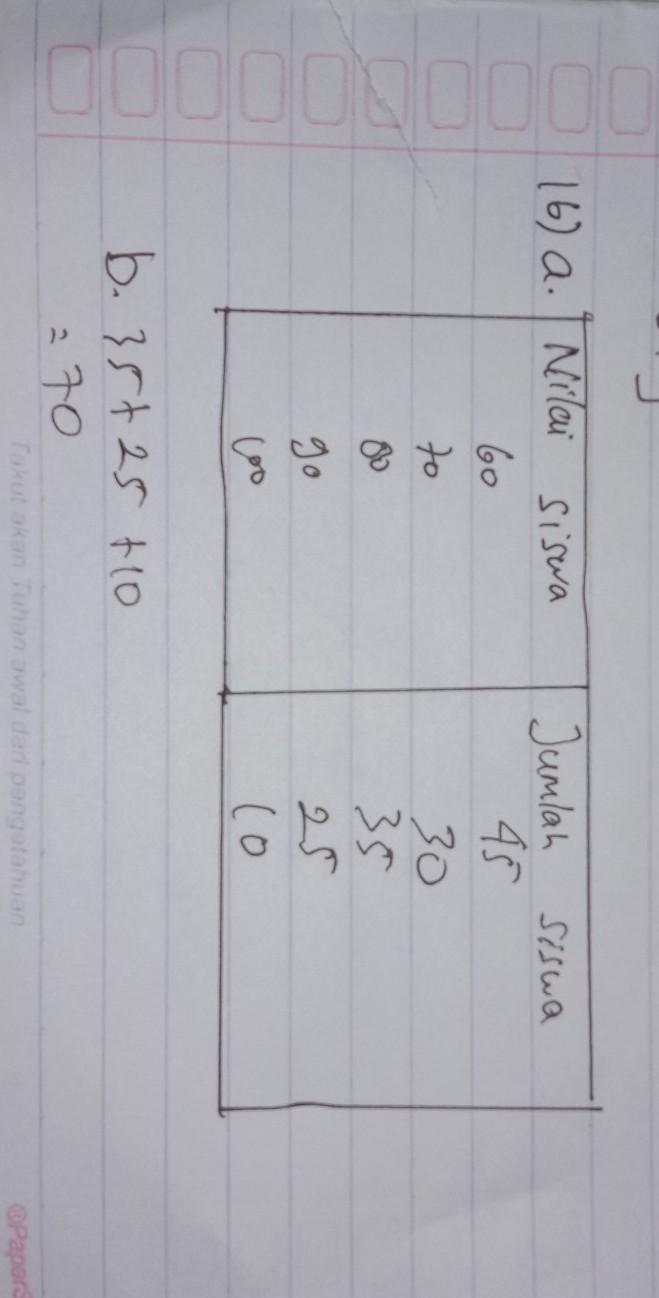 16) a. Nilai siswa Jumlah siswa
60 45
70 30
80 35
90 25
100 10
b. 35 + 25 + 10
= 70
Takut akan Tuhan awal dari pengetahuan